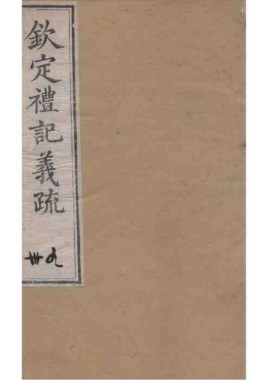 欽定禮記義疏
卌九